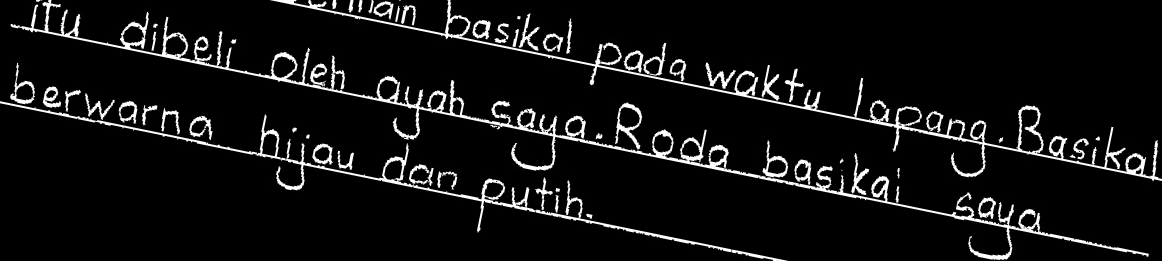 basikal pada waktu lapang. Basikal
itu dibeli oleh ayah saya. Roda basikal saya
berwarna hijau dan putih.